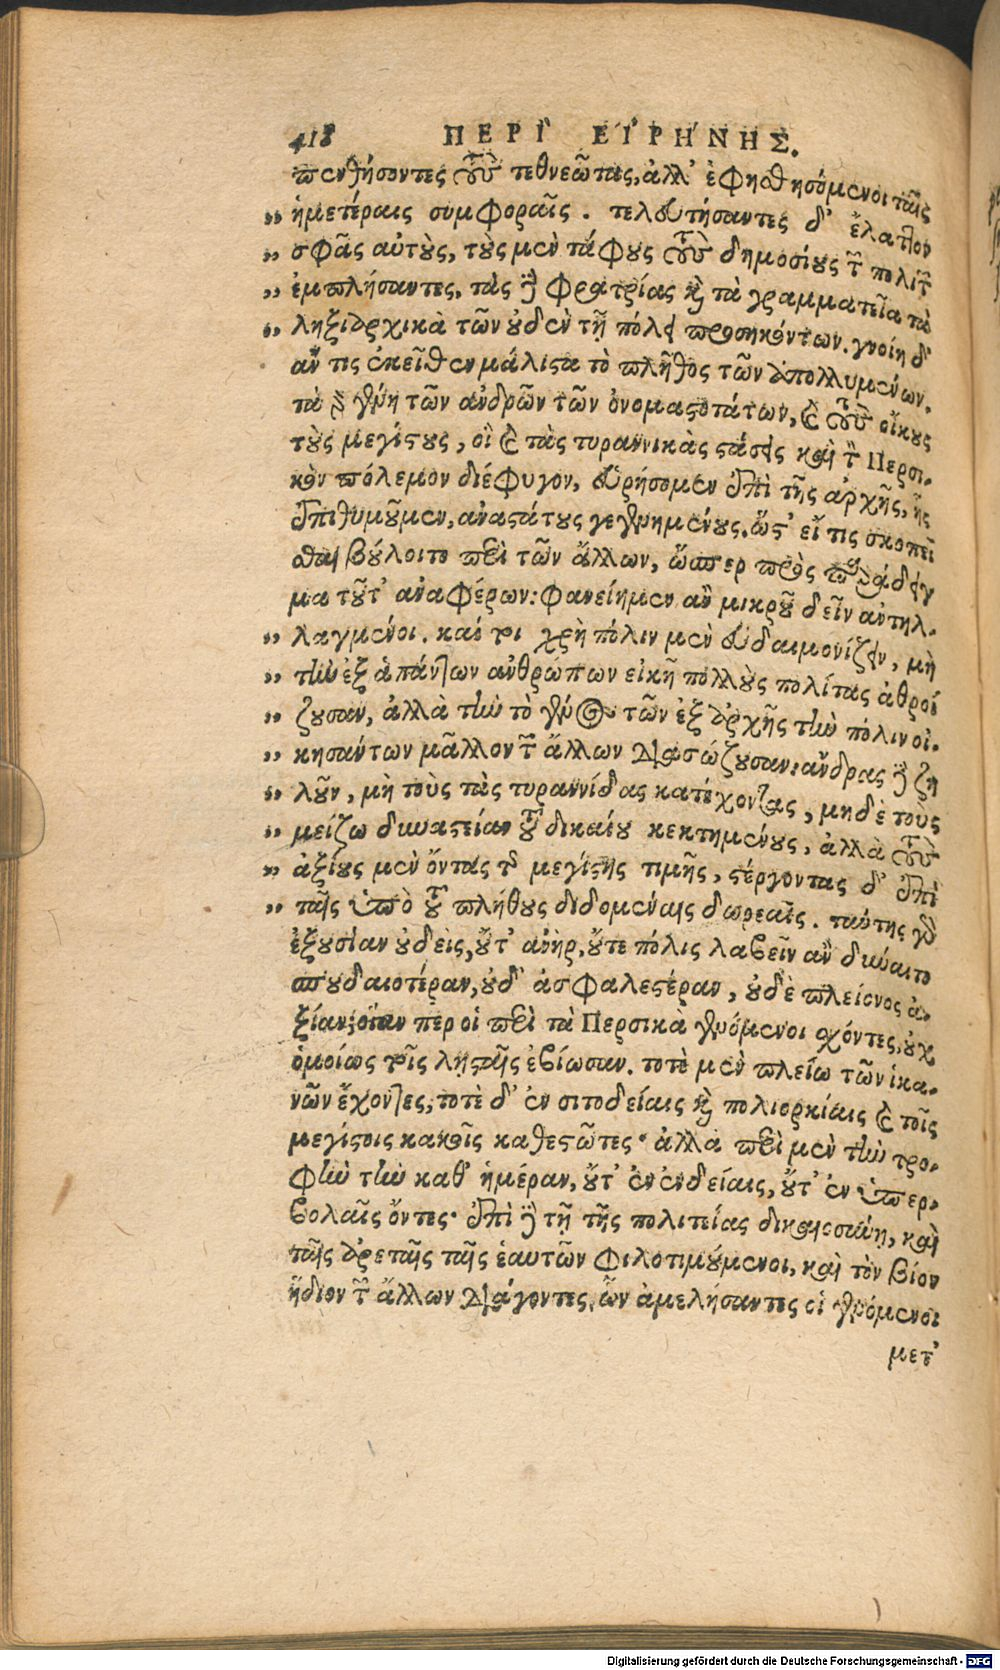 418 ΠΕΡΙ ΕΙΡΗΝΗΣ.
πενθήσοντες τοὺς τεθνεῶτας, ἀλλ' ἐφησθησόμενοι ταῖς
„ ἡμετέραις συμφοραῖς. τελευτήσαντες δ' ἔλαθον
„ σφᾶς αὐτοὺς, τοὺς μὲν τάφους τοὺς δημοσίους τῶν πολιτῶν
„ ἐμπλήσαντες, τὰς δὲ φρατρίας καὶ τὰ γραμματεῖα τὰ
„ ληξιαρχικὰ τῶν οὐδὲν τῇ πόλει προσηκόντων. γνοίη δ'
ἄν τις ἐκεῖθεν μάλιστα τὸ πλῆθος τῶν ἀπολλυμένων.
τὰ γὰρ γένη τῶν ἀνδρῶν τῶν ὀνομαστοτάτων, καὶ τοὺς οἴκους
τοὺς μεγίστους, οἳ καὶ τὰς τυραννικὰς στάσεις καὶ τὸν Περσι-
κὸν πόλεμον διέφυγον, εὑρήσομεν ἐπὶ τῆς ἀρχῆς, ἧς
ἐπιθυμοῦμεν, ἀναστάτους γεγενημένους. ὥστ' εἴ τις σκοπεῖ
σθαι βούλοιτο περὶ τῶν ἄλλων, ὥσπερ πρὸς παράδειγ
μα τοῦτ' ἀναφέρων: φανείημεν ἂν μικροῦ δεῖν ἀντηλ-
„ λαγμένοι. καίτοι χρὴ πόλιν μὲν εὐδαιμονίζειν, μὴ
„ τὴν ἐξ ἁπάντων ἀνθρώπων εἰκῆ πολλοὺς πολίτας ἀθροί
„ ζουσαν, ἀλλὰ τὴν τὸ γένος τῶν ἐξ ἀρχῆς τὴν πόλιν οἰ-
„ κησάντων μᾶλλον τῶν ἄλλων διασώζουσαν: ἄνδρας δὲ ζη
„ λοῦν, μὴ τοὺς τὰς τυραννίδας κατέχοντας, μηδὲ τοὺς
„ μείζω δυναστείαν τοῦ δικαίου κεκτημένους, ἀλλὰ τοὺς
„ ἀξίους μὲν ὄντας τῆς μεγίστης τιμῆς, στέργοντας δ' ἐπὶ
„ ταῖς ὑπὸ τοῦ πλήθους διδομέναις δωρεαῖς. ταύτης γὰρ
ἐξουσίαν οὐδεὶς, οὔτ' ἀνὴρ, οὔτε πόλις λαβεῖν ἂν δύναιτο
σπουδαιοτέραν, οὐδ' ἀσφαλεστέραν, οὐδὲ πλείονος ἀ-
ξίαν: ὅπαν περ οἱ περὶ τὰ Περσικὰ γενόμενοι σχόντες, οὐχ
ὁμοίως τοῖς λῃσταῖς ἐβίωσαν. τοτὲ μὲν πλείω τῶν ἱκα-
νῶν ἔχοντες, τοτὲ δ' ἐν σιτοδείαις καὶ πολιορκίαις καὶ τοῖς
μεγίστοις κακοῖς καθεστῶτες· ἀλλὰ περὶ μὲν τὴν τρο-
φὴν τὴν καθ' ἡμέραν, οὔτ' ἐν ἐνδείαις, οὔτ' ἐν ὑπερ-
βολαῖς ὄντες· ἐπὶ δὲ τῇ τῆς πολιτείας δικαιοσύνῃ, καὶ
ταῖς ἀρεταῖς ταῖς ἑαυτῶν φιλοτιμούμενοι, καὶ τὸν βίον
ἥδιον τῶν ἄλλων διάγοντες. ὧν ἀμελήσαντες οἱ γενόμενοι
μετ'
Digitalisierung gefördert durch die Deutsche Forschungsgemeinschaft - DFG